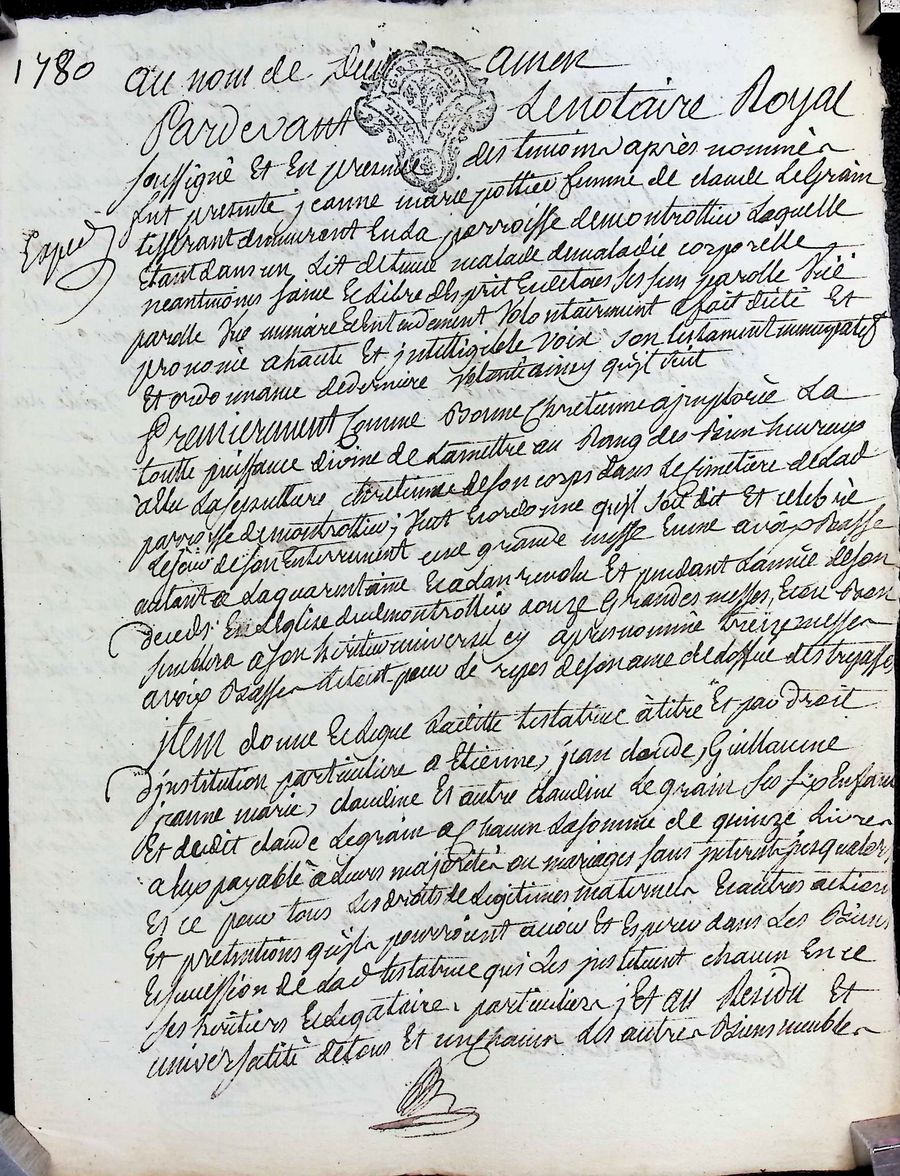 1780
au nom de Dieu amen
Pardevant Le notaire Royal
soussignè Et En presence des temoins après nommès
fut presente jeanne marie pottier femme de claude Le Grain
tisserant demeurant En La parroisse de montrottier Laquelle
Exped
Etant dans un Lit detenue malade de maladie corporelle
neantmoins saine Et Libre d'Esprit En de tous ses sens parolle Vüe
parolle Vüe memoire Et Entendement Volontairement a fait dicté Et
prononcè a haute Et jntelligible voix son testament nuncupatif
Et ordonnance de derniere Volonté ainsy qu'jl suit
Premierement Comme Bonne Chretienne a jmplorée La
toutte puissance divine de La mettre au Rang des Bien heureux
a elu La sepulture chretienne de son corps dans Le Cimetière de Lad
parroisse de montrottier; Veut Et ordonne qu'jl soit dit Et celebrè
Le jour de son Enterrement une grande messe Et une a voix Basse
autant a La quarentaine Et a L'an revolu Et pendant L'année de son
deceds En L'Eglise dud montrottier douze Grandes messes, Et ou Bon
semblera a son heritier universel cy apres nommè treize messes
a voix Basse Le tout pour Le repos de son ame de des trepassés
jtem donne Et Legue Laditte testatrice à titre Et par droit
d'jnstitution particuliere a Etienne, jean claude, Guillaume
jeanne marie, claudine Et autre claudine Le grain ses six Enfans
Et dudit claude Le grain a Chacun La somme de quinze Livres
a Eux payable a Leurs majoritès ou mariages sans jnterest jusqu'alors
Et ce pour tous Les droits de Legitimes maternels Et autres actions
Et pretentions qu'jls pourroient avoir Et Esperer dans Les Biens
Et succession de Lad testatrice qui Les jnstituent chacun En ce
ses heritiers Et Legataires particuliers; Et au Residu Et
universalitè de tous Et un Chacun des autres Biens meubles